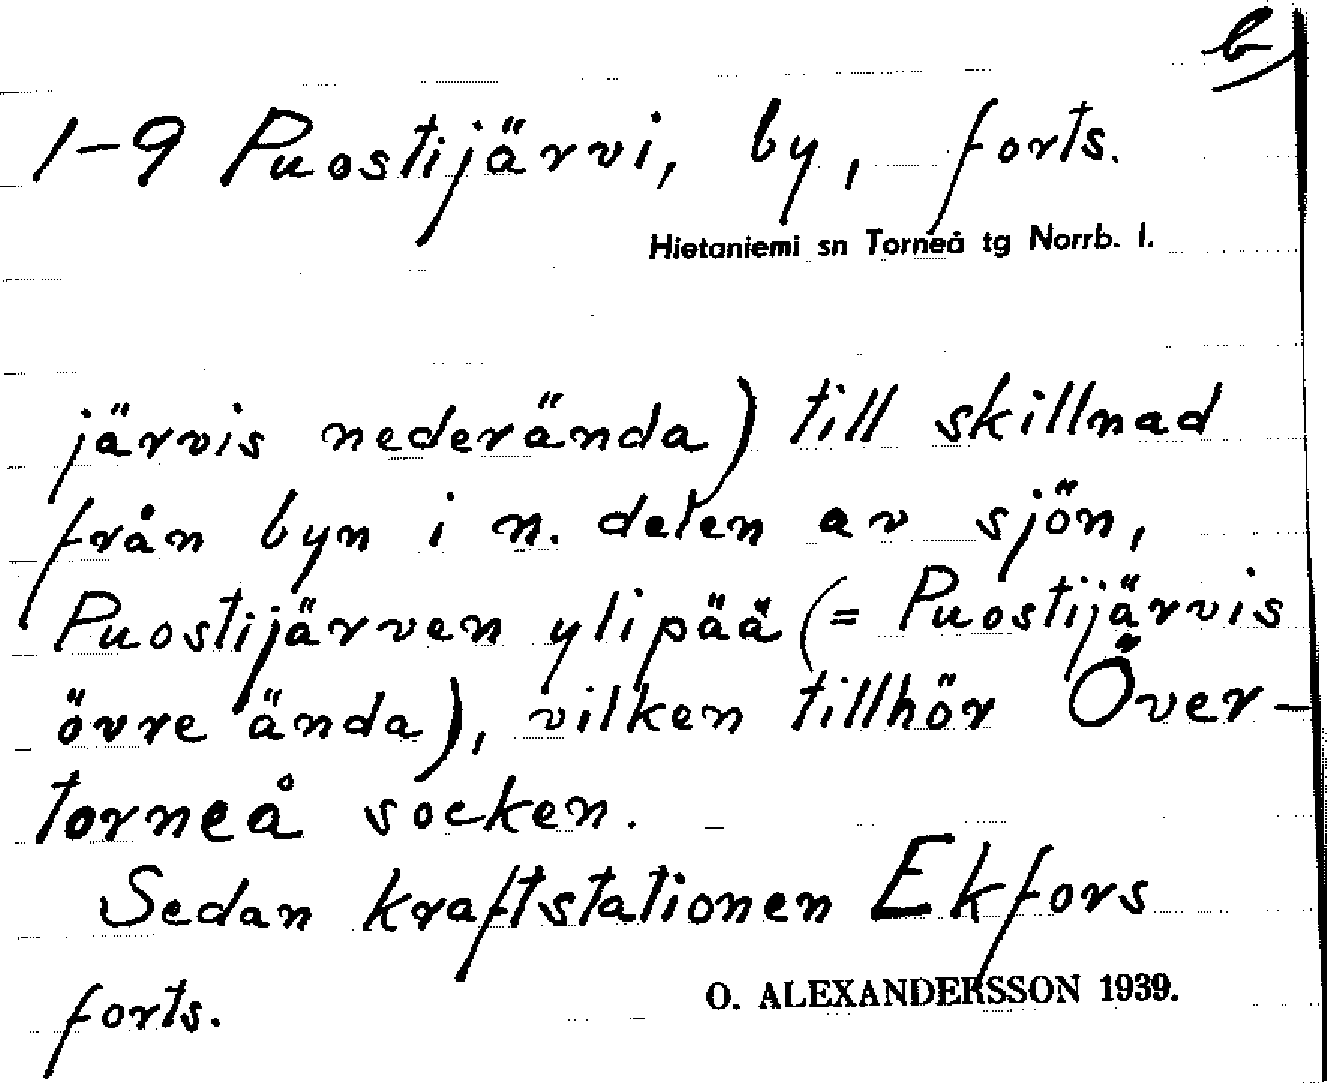 b)
1-9 Puostijärvi, by, forts.
Hietaniemi sn Torneå tg Norrb. l.
järvis nederända) till skillnad
från byn i n. delen av sjön,
Puostijärven ylipää (= Puostijärvis
övre ända), vilken tillhör Över-
torneå socken.
Sedan kraftstationen Ekfors
forts.
O. ALEXANDERSSON 1939.